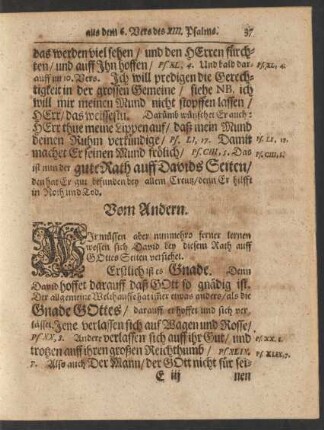 aus dem 6. Vers des XIII. Psalms. 37
das werden viel sehen / und den HErren fürch-
ten / und auff Ihn hoffen / Ps. XL, 4. Und bald dar- Ps. XL, 4.
auff im 10. Vers. Ich will predigen die Gerech-
tigkeit in der grossen Gemeine / siehe NB. ich
will mir meinen Mund nicht stopffen lassen /
HErr / das weissestu. Darümb wünschet Er auch:
HErr thue meine Lippen auf / daß mein Mund
deinen Ruhm verkündige / Ps. LI, 17. Damit Ps. LI, 17.
machet Er seinen Mund frölich / Ps. CIII, 5. Das Ps. CIII, 5.
ist nun der gute Rath auff Davids Seiten /
den hat Er gut befunden bey allem Creutz / denn Er hilfft
in Noth und Tod.
Vom Andern.
WIr müssen aber nunmehro ferner lernen
wessen sich David bey diesem Rath auff
GOttes Seiten versichet.
Erstlich ist es Gnade. Denn
David hoffet darauff daß GOtt so gnädig ist.
Der allgemeine Welchauffe hat immer etwas anders / als die
Gnade GOttes / darauff er hoffet und sich ver-
lässet. Jene verlassen sich auf Wagen und Rosse /
Ps. XX, 8. Andere verlassen sich auff ihr Gut / und Ps. XX. 8.
trotzen auff ihren großen Reichthumb / Ps. XLIX, Ps. XLIX. 7.
7. Also auch Der Mann / der GOtt nicht für sei-
E iij nen